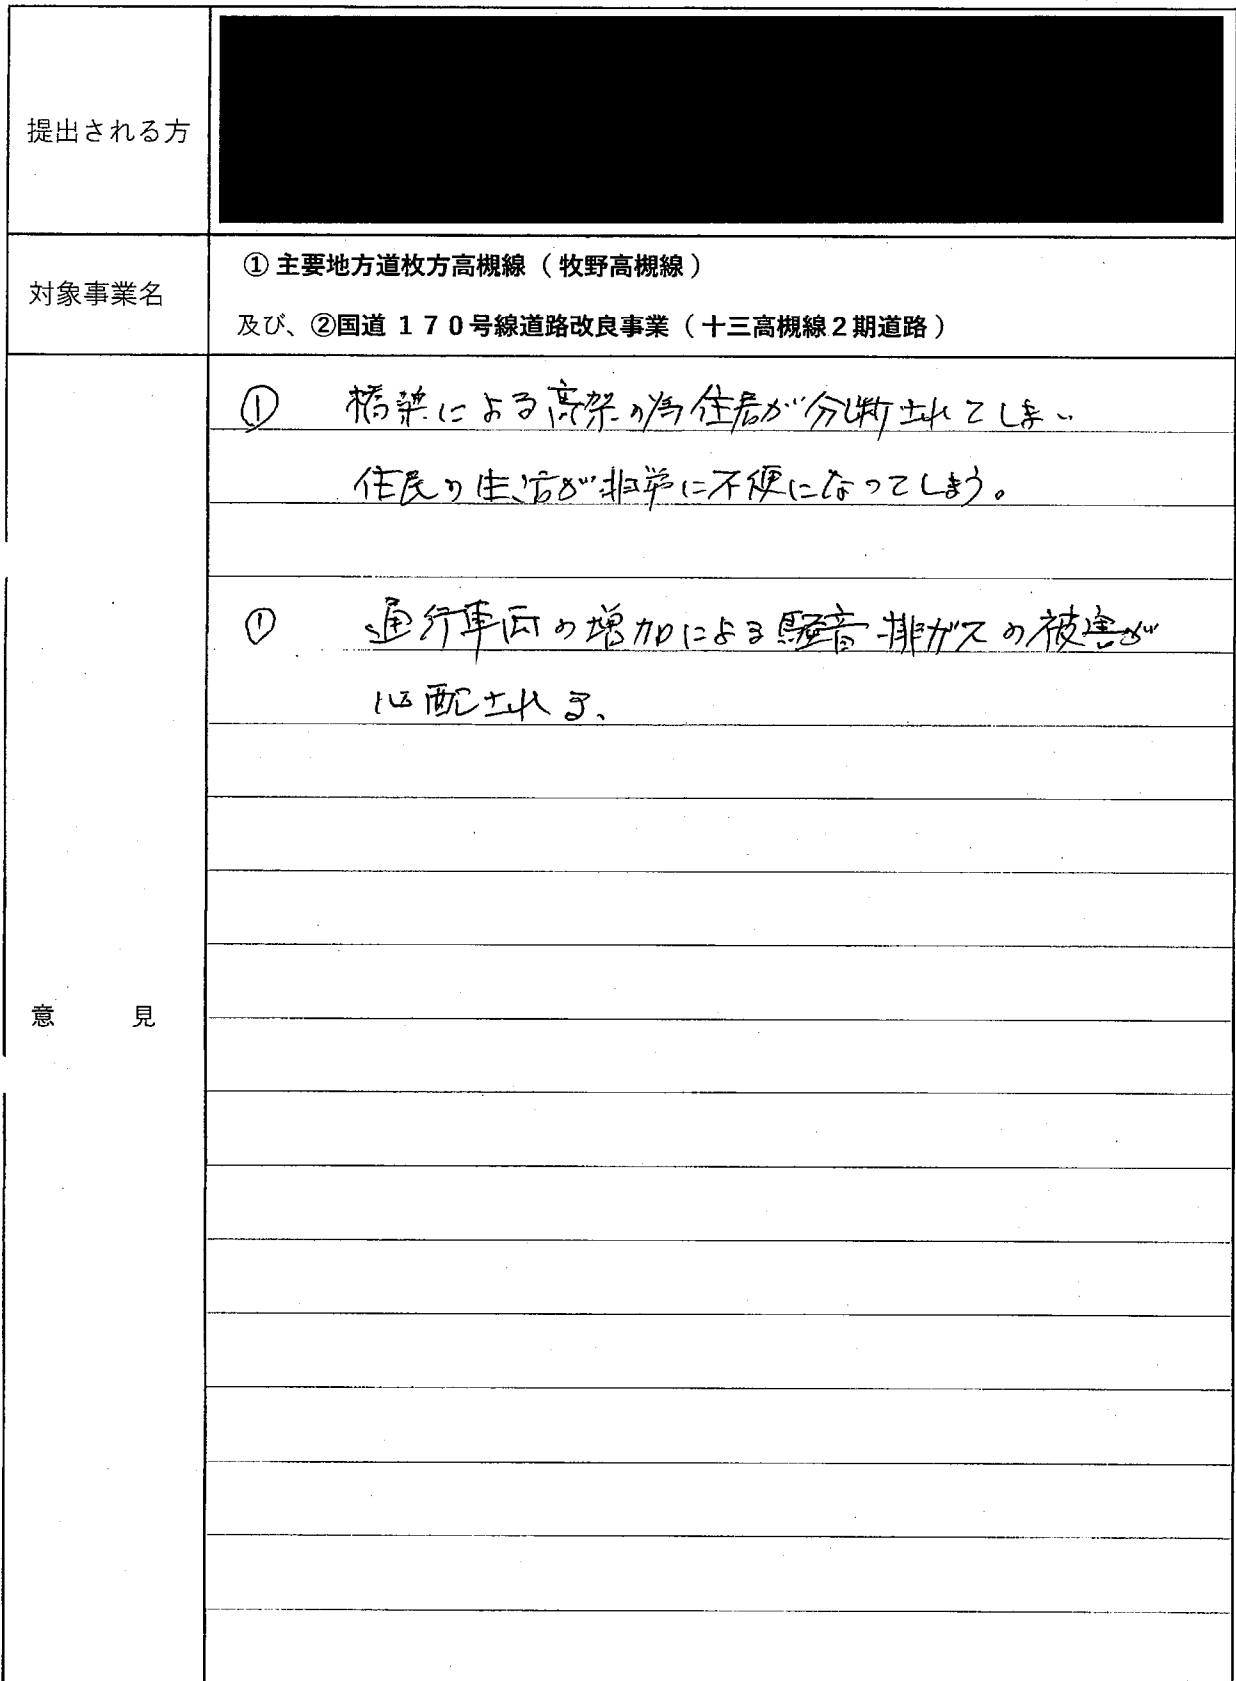 提出される方
対象事業名
① 主要地方道枚方高槻線（牧野高槻線）
及び、②国道１７０号線道路改良事業（十三高槻線２期道路）
意　見
① 橋梁による高架の為住居が分断されてしまい
住民の生活が非常に不便になってしまう。
① 通行車両の増加による騒音排ガスの被害が
心配される、